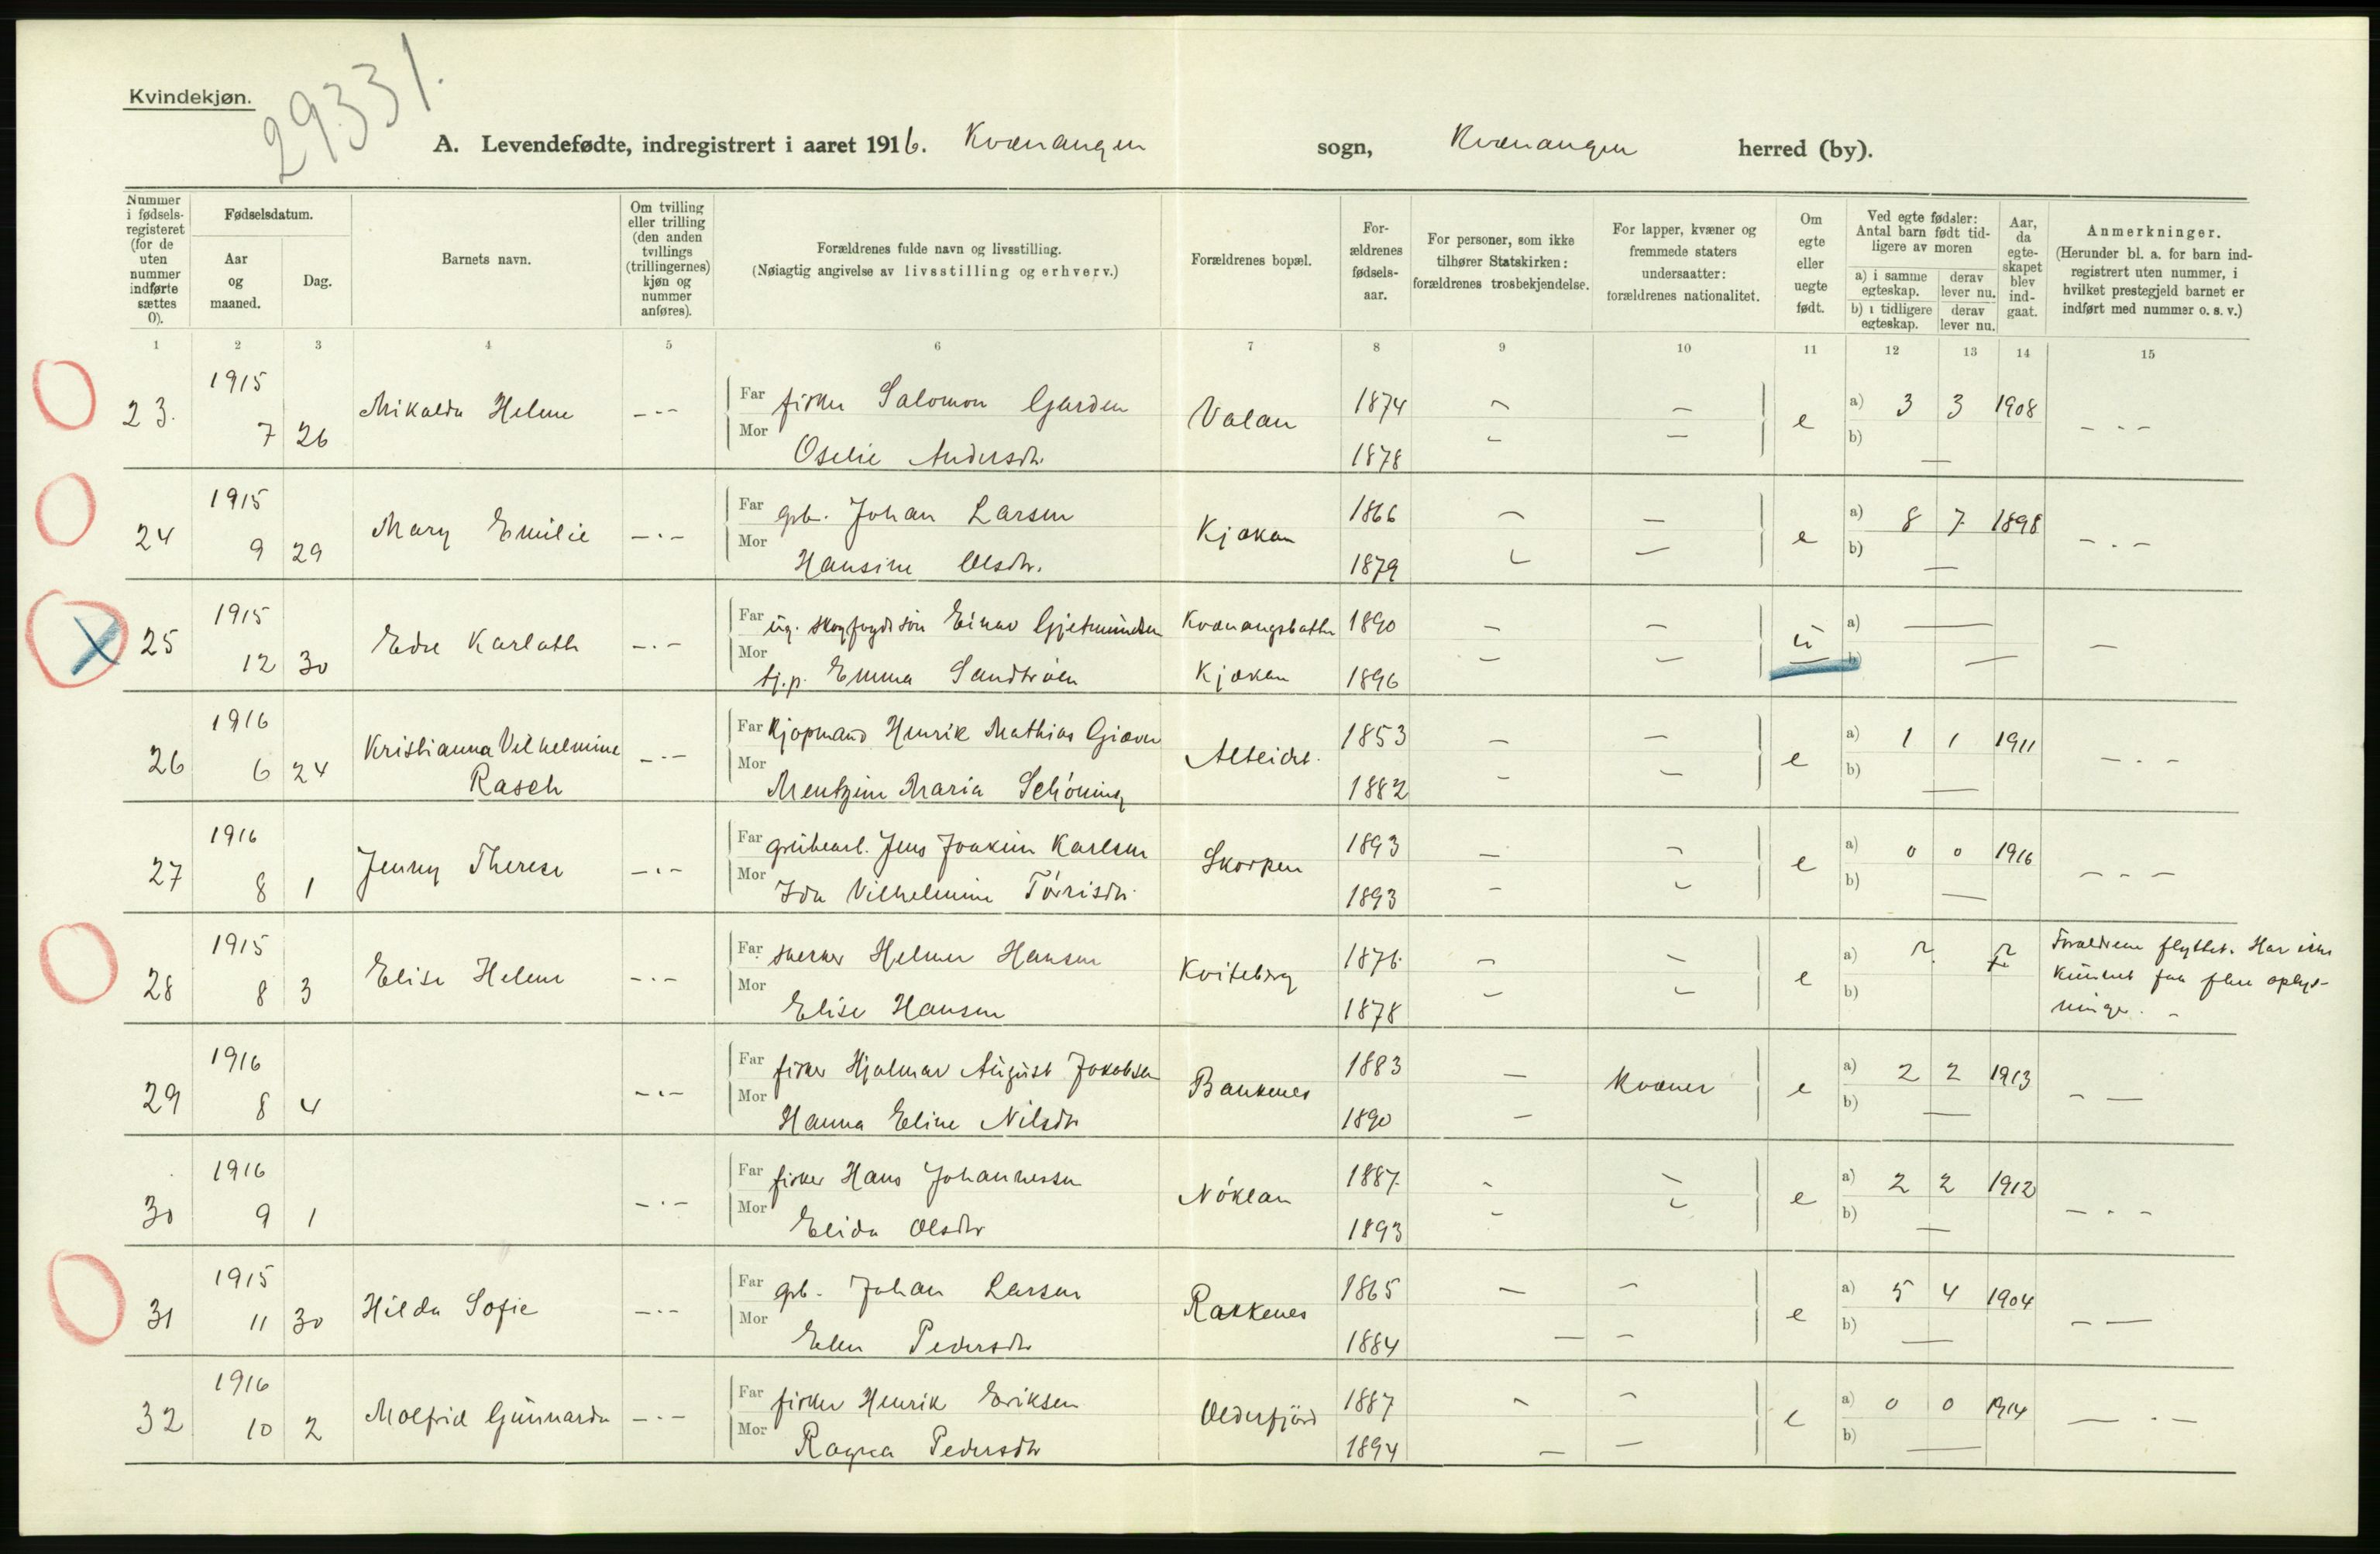 Kvindekjøn.
29331.
A. Levendefødte, indregistrert i aaret 1916. Kvænangen sogn, Kvænangen herred (by).
Nummer i fødselsregisteret (for de uten nummer indførte sættes 0).
Fødselsdatum.
Aar og maaned.
Dag.
Barnets navn.
Om tvilling eller trilling (den anden tvillings (trillingernes) kjøn og nummer anføres).
Forældrenes fulde navn og livsstilling.
(Nøiagtig angivelse av livsstilling og erhverv.)
Forældrenes bopæl.
Forældrenes fødselsaar.
For personer, som ikke tilhører Statskirken: forældrenes trosbekjendelse.
For lapper, kvæner og fremmede staters undersaatter: forældrenes nationalitet.
Om egte eller uegte født.
Ved egte fødsler: Antal barn født tidligere av moren
a) i samme egteskap. derav lever nu.
b) i tidligere egteskap. derav lever nu.
Aar, da egteskapet blev indgaat.
Anmerkninger.
(Herunder bl. a. for barn indregistrert uten nummer, i hvilket prestegjeld barnet er indført med nummer o. s. v.)
1 2 3 4 5 6 7 8 9 10 11 12 13 14 15
23. 1915 7 26 Mikalda Helene - - - Far fisker Salomon Garden Valan 1874 — — e a) 3 3 1908 - - -
Mor Oselie Andersdtr. 1878 — — b) —
24 1915 9 29 Mary Emilie - - - Far grb. Johan Larsen Kjækan 1866 — — e a) 8 7 1898 - - -
Mor Hansine Olsdtr. 1879 — — b) —
25 1915 12 30 Karloth - - - Far ug. skogfogds søn Einar Gjetmundsen Kvænangsbotten 1890 — — u a) —
Mor tj.p. Emma Kjækan 1896 — — b) — —
26 1916 6 24 Kristianna Vilhelmine Rasch - - - Far Kjøpmand Henrik Mathias Giæver Alteidet. 1853 — — e a) 1 1 1911 - - -
Mor Mentzine Maria Schöning 1882 — — b) —
27 1916 8 1 Jenny Therese - - - Far Jens Joakim Karlsen Skorpen 1893 — — e a) 0 0 1916 - - -
Mor Ida Vilhelmine Tørrisdtr. 1893 — — b) —
28 1915 8 3 Elise Helene - - - Far Helmer Hansen Kviteberg 1876 — — e a) ? ? Forældrene flyttet. Har ikke
Mor Elise Hansen 1878 — — b) kunnet faa flere oplys-
ninger. -
29 1916 8 4 - - - Far fisker Hjalmar August Jakobsen Bankenes 1883 — Kvæner e a) 2 2 1913 - —
Mor Hanna Eline Nilsdtr 1890 — b) —
30 1916 9 1 - - - Far fisker Hans Johannessen Nøklan 1887. — — e a) 2 2 1912 - - -
Mor Elida Olsdtr 1893 — — b) —
31 1915 11 30 Hilda Sofie - - - Far grb. Johan Larsen 1865 — — e a) 5 4 1904 - —
Mor Elen Pedersdtr 1884 — — b) —
32 1916 10 2 Molfrid Gunnarda - - - Far fisker Henrik Eriksen Olderfjord 1887 — — e a) 0 0 1914 — - -
Mor Ragna Pedersdtr 1894 — — b) —